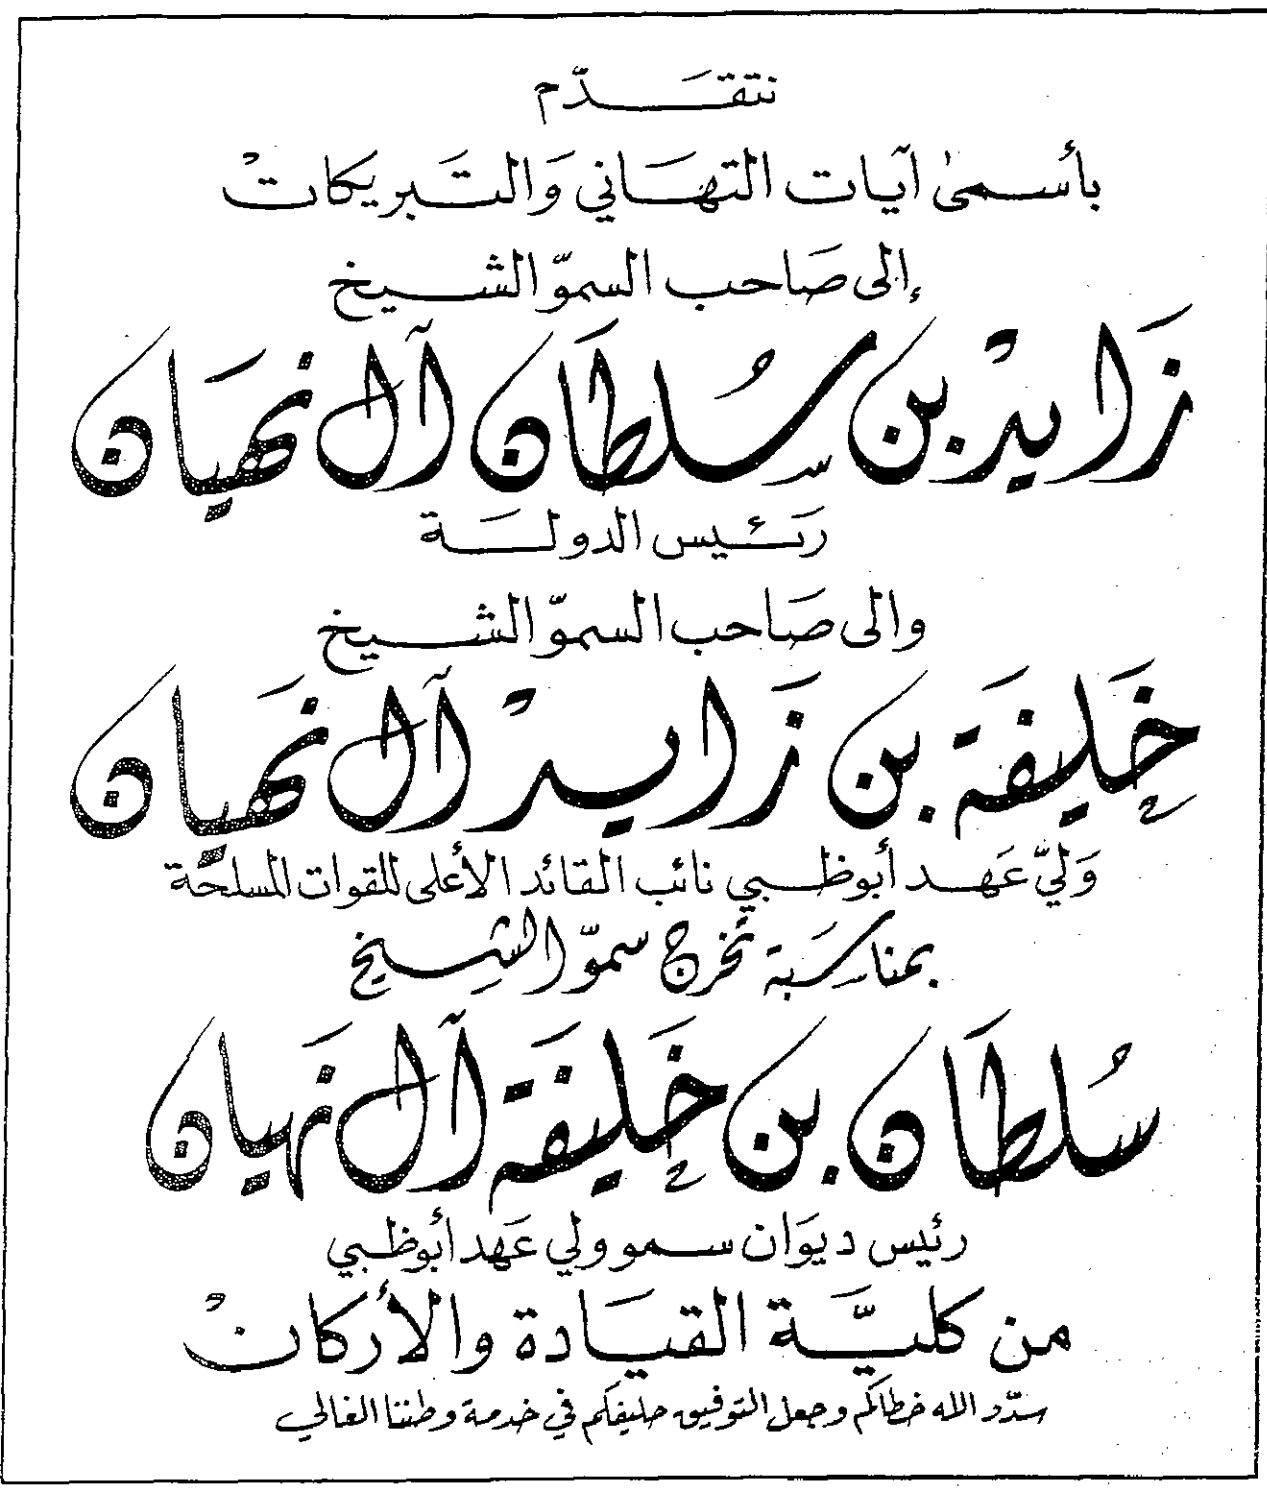 نتقَدّم
بأسمىٰ آيات التهَاني وَالتَبريكاتْ
إلى صَاحب السموّ الشيخ
زَايدْ بن سُلطَان آل نهَيان
رَئيس الدولَة
والى صَاحب السموّ الشيخ
خَليفَة بن زَايدْ آل نهَيان
وَليّ عَهد أبوظبي نائب القائد الأعلى للقوات المسلحَة
بمناسَبة تخَرج سموّ الشيخ
سُلطَان بن خَليفَة آل نهَيان
رئيس ديوَان سمو ولي عَهد أبوظبي
من كليَّة القيَادة والأركانْ
سدّد الله خطاكَم وجعل التوفيق حليفكم في خدمة وطننا الغالي